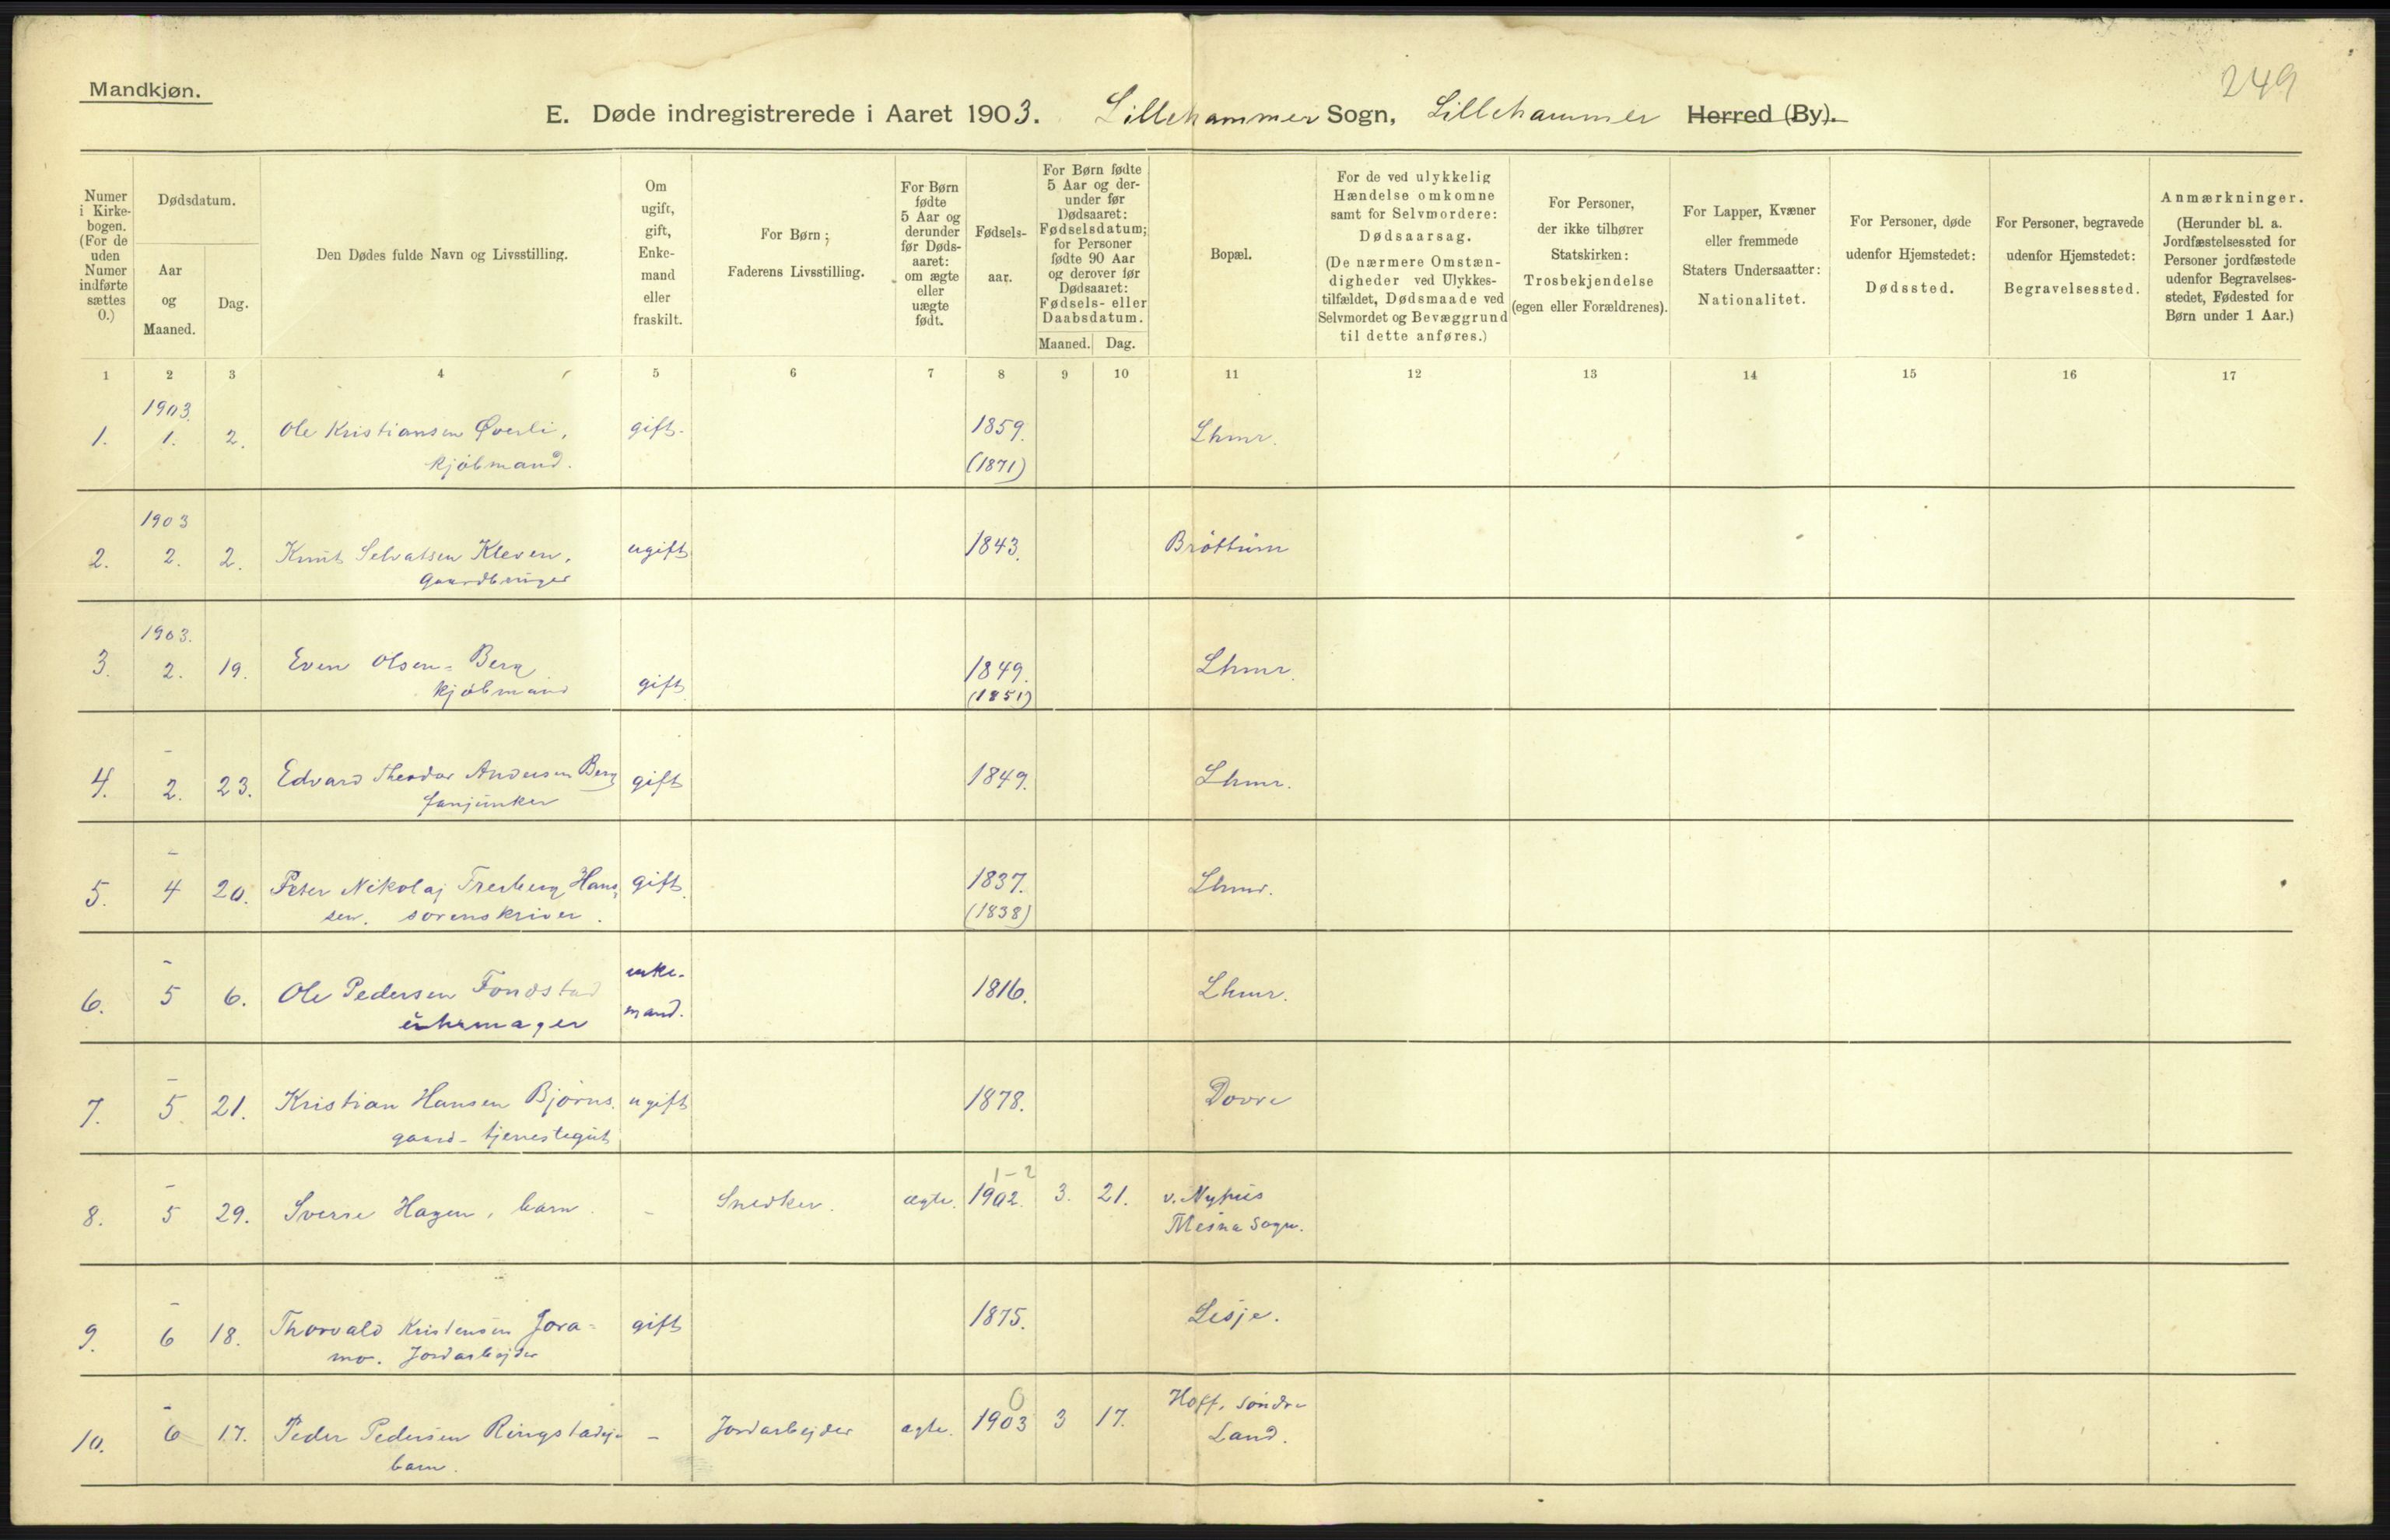 249
Mandkjøn.
E. Døde indregistrerede i Aaret 1903. Lillehammer Sogn, Lillehammer Herred (By).
Numer i Kirkebogen. (For de uden Numer indførte sættes 0.)
Dødsdatum.
Aar og Maaned.
Dag.
Den Dødes fulde Navn og Livsstilling.
Om ugift, gift, Enkemand eller fraskilt.
For Børn; Faderens Livsstilling.
For Børn fødte 5 Aar og derunder før Dødsaaret: om ægte eller uægte født.
Fødselsaar.
For Børn fødte 5 Aar og derunder før Dødsaaret: Fødselsdatum; for Personer fødte 90 Aar og derover før Dødsaaret: Fødsels- eller Daabsdatum.
Maaned. Dag.
Bopæl.
For de ved ulykkelig Hændelse omkomne samt for Selvmordere: Dødsaarsag. (De nærmere Omstændigheder ved Ulykkestilfældet, Dødsmaade ved Selvmordet og Bevæggrund til dette anføres.)
For Personer, der ikke tilhører Statskirken: Trosbekjendelse (egen eller Forældrenes).
For Lapper, Kvæner eller fremmede Staters Undersaatter: Nationalitet.
For Personer, døde udenfor Hjemstedet: Dødssted.
For Personer, begravede udenfor Hjemstedet: Begravelsessted.
Anmærkninger. (Herunder bl. a. Jordfæstelsessted for Personer jordfæstede udenfor Begravelsesstedet, Fødested for Børn under 1 Aar.)
1 2 3 4 5 6 7 8 9 10 11 12 13 14 15 16 17
1903.
1. 1. 2. Ole Kristiansen Øverli, gift. 1859. Lhmr.
kjøbmand. (1871)
1903
2. 2. 2. Knut Selvatsen Kleven, ugift 1843. Brøttum
Gaardbruger
1903.
3. 2. 19. Even Olsen=Berg gift. 1849. Lhmr.
kjøbmand (1851)
–
4. 2. 23. Edvard Theodor Andersen Berg gift 1849. Lhmr.
fanjunker
–
5. 4 20. Peter Nikolaj Freberg Han= gift. 1837. Lhmr.
sen. sorenskriver. (1838)
–
6. 5 6. Ole Pedersen Fondstad enke- 1816. Lhmr.
uhrmager mand.
–
7. 5. 21. Kristian Hansen Bjørns- ugift 1878. Dovre
gaard – tjenestegut
– 1–2
8. 5 29. Sverre Hagen, barn. – Snedker. ægte. 1902. 3. 21. v. Nyhus
Mesna Sogn.
–
9. 6 18. Thorvald Kristensen Jora= gift 1875. Lesje.
mo. Jordarbejder
– 0
10. 6 17. Peder Pedersen – Jordarbejder ægte. 1903 3 17. Hoff, søndre
barn. Land.